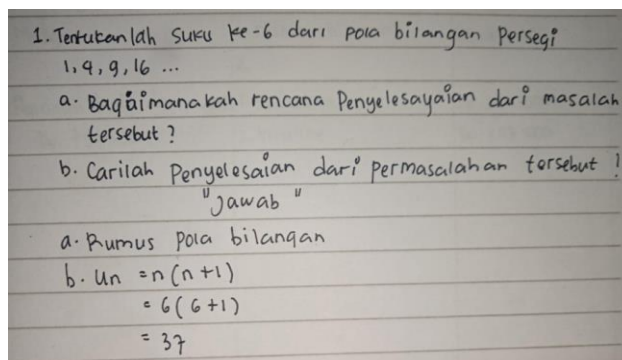 1. Tentukanlah suku ke-6 dari pola bilangan persegi
1, 4, 9, 16 ...
a. Bagaimanakah rencana Penyelesayaian dari masalah
tersebut ?
b. Carilah Penyelesaian dari permasalahan tersebut !
"Jawab"
a. Rumus Pola bilangan
b. Un = n(n+1)
= 6(6+1)
= 37